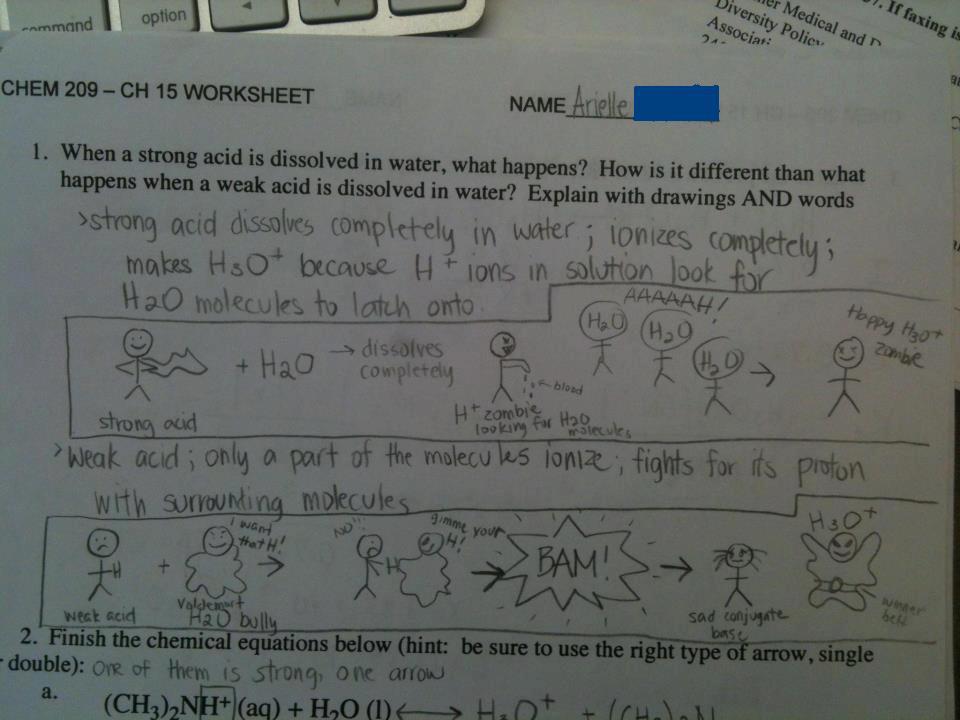 command option
er Medical and
Diversity Policy
. If faxing is
CHEM 209 – CH 15 WORKSHEET
NAME Arielle
1. When a strong acid is dissolved in water, what happens? How is it different than what
happens when a weak acid is dissolved in water? Explain with drawings AND words
>strong acid dissolves completely in water; ionizes completely;
makes H3O+ because H+ ions in solution look for
H2O molecules to latch onto.
AAAAAH!
H2O H2O H2O
Happy H3O+
zombie
+ H2O → dissolves
completely
←blood
→
strong acid
H+ zombie
looking for H2O
molecules
>Weak acid; only a part of the molecules ionize; fights for its proton
with surrounding molecules
I want
that H!
NO!!!
gimme your
H!
H3O+
H + → H → BAM! →
weak acid
Valdemort
H2O bully
sad conjugate
base
winner
belt
2. Finish the chemical equations below (hint: be sure to use the right type of arrow, single
double): one of them is strong, one arrow
a. (CH3)2NH+ (aq) + H2O (l) ⟷ H3O+ +